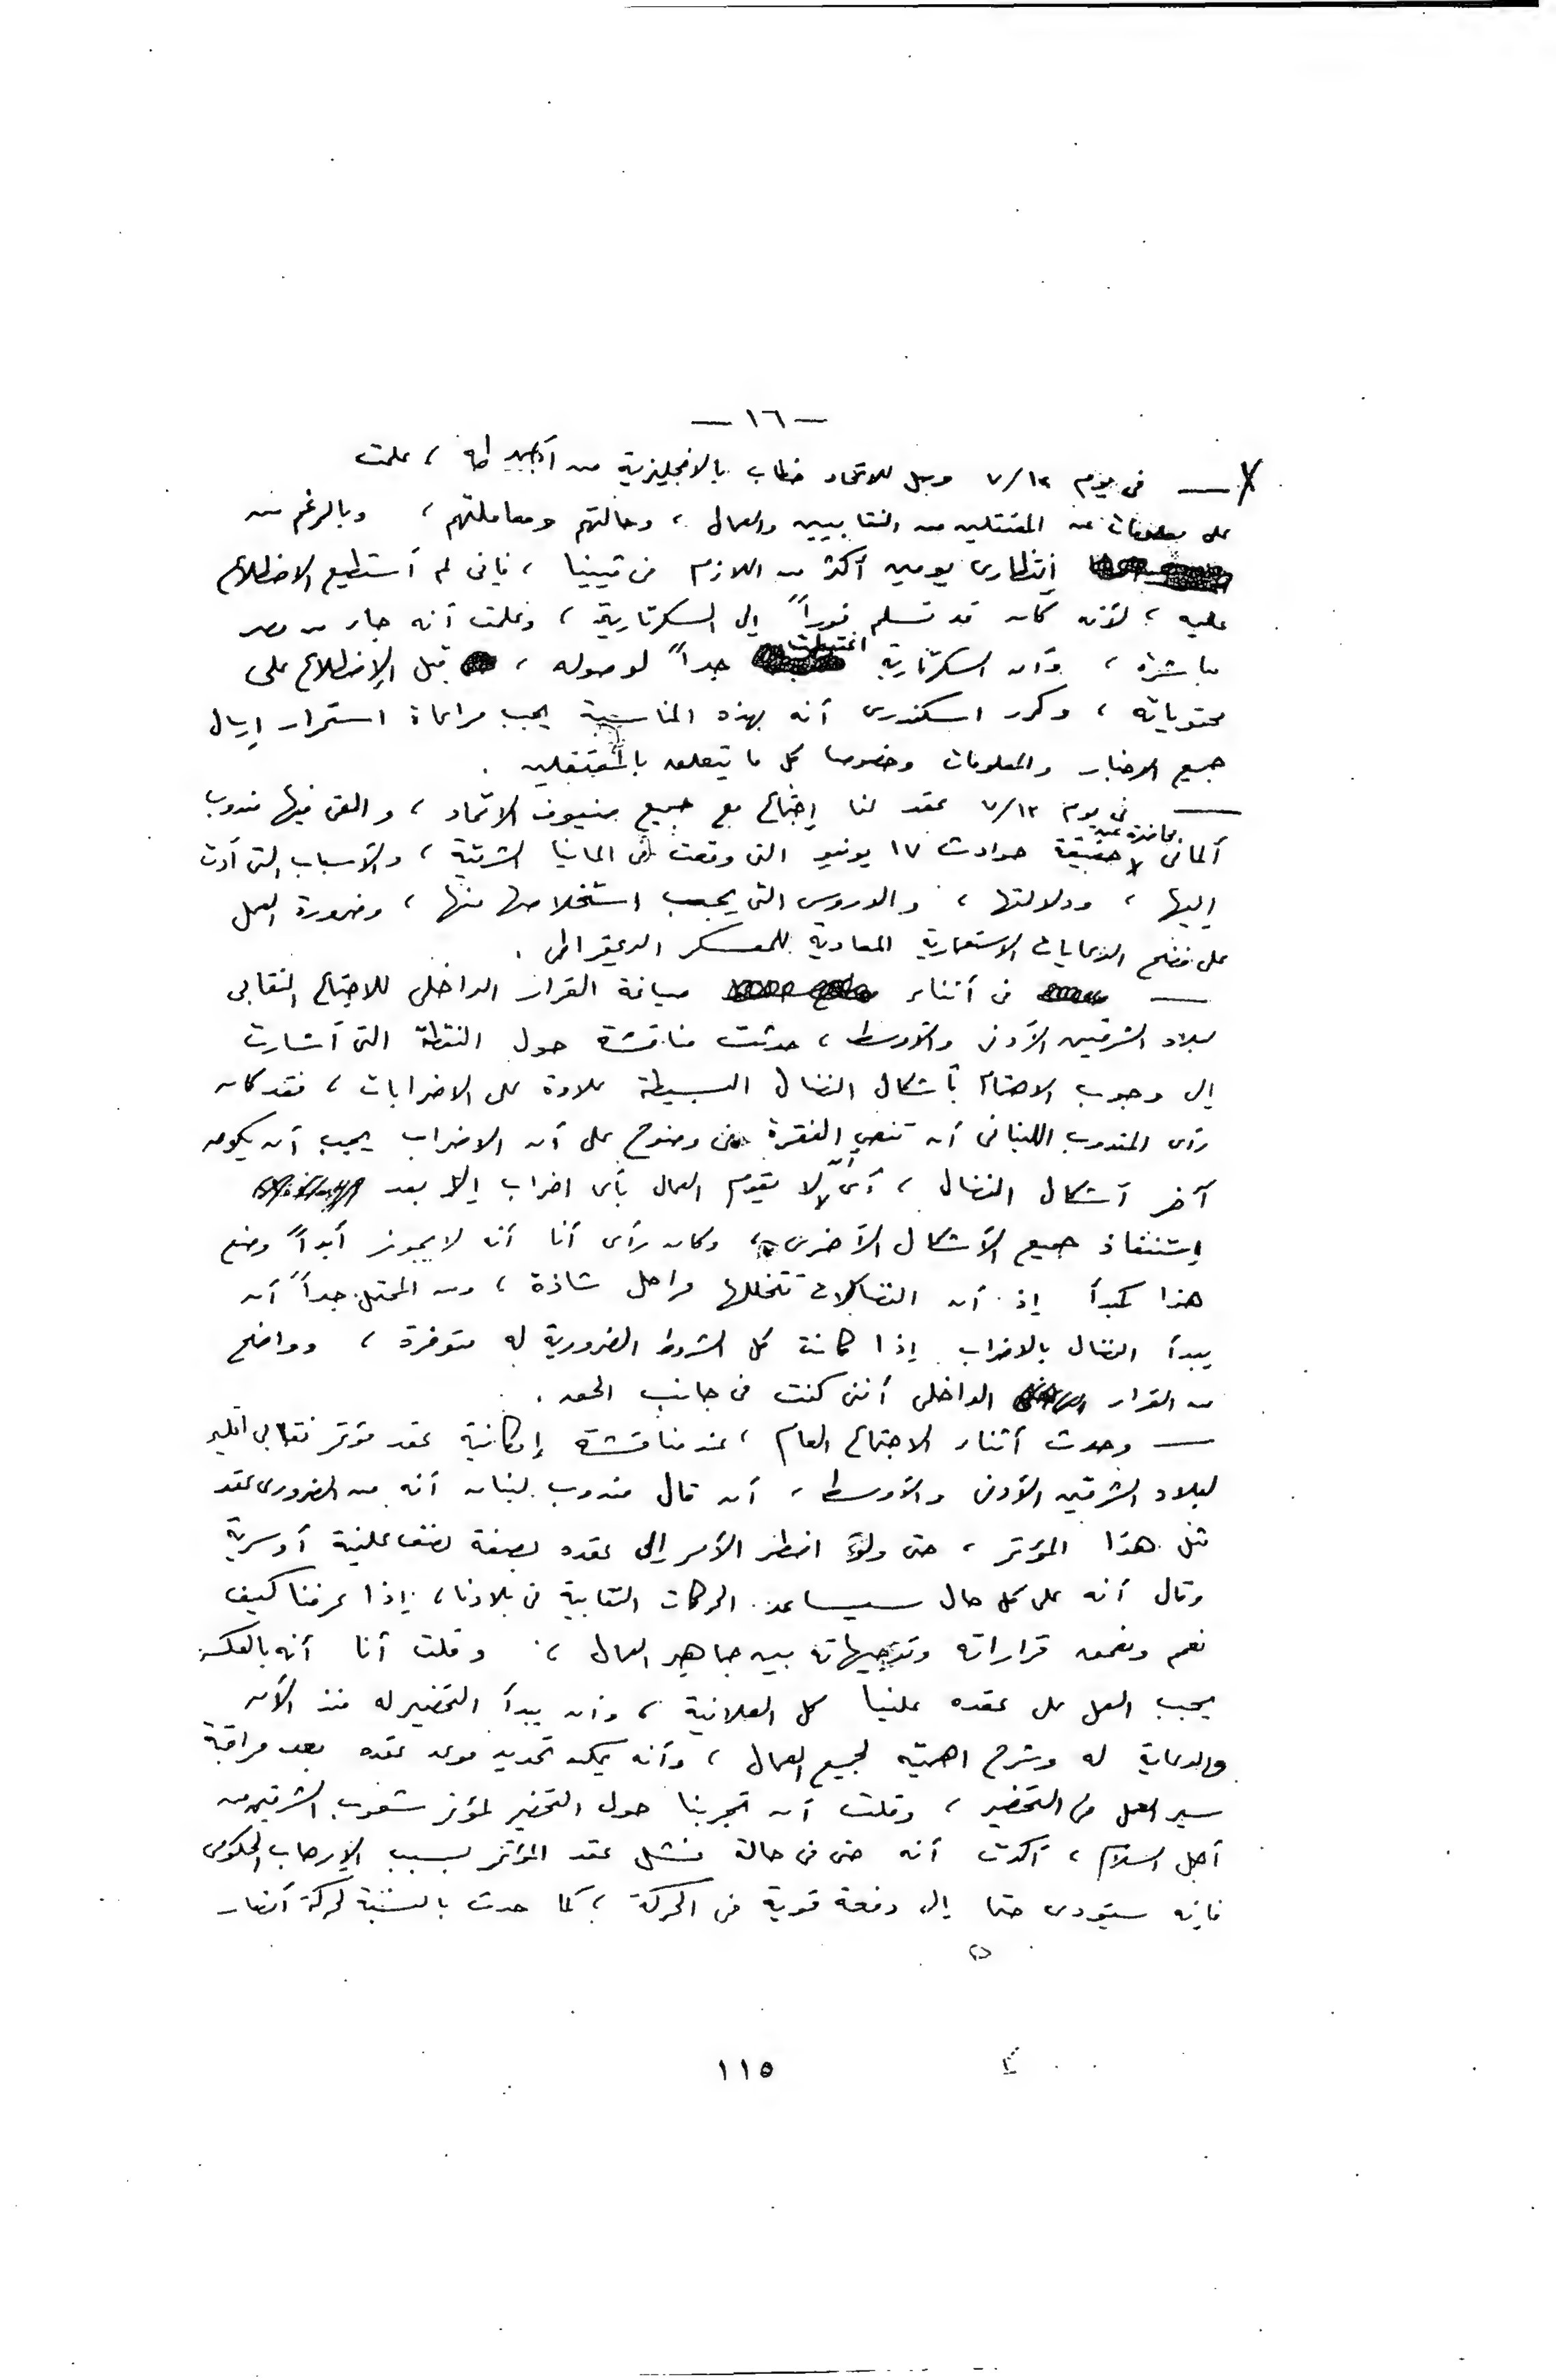 — ١٦ —
— فى يوم ٧/١٢ وصل للاتحاد خطاب بالانجليزية من طه ، علمت
على معلومات عن المعتقلين من النقابيين والعمال ، وحالتهم ومعاملتهم ، وبالرغم من
إنتظارى يومين أكثر من اللازم فى فيينا ، فانى لم أستطيع الاضطلاع
عليه ، لأنه كان قد تسلم فوراً إلى السكرتارية ، وعلمت أنه جاء من مصر
مباشرة ، وأن السكرتارية اغتبطت جداً لوصوله ، قبل الإضطلاع على
محتوياته ، وكرر اسكندرى أنه بهذه المناسبة يجب مراعاة استمرار إرسال
جميع الاخبار والمعلومات وخصوصا كل ما يتعلق بالمعتقلين .
— فى يوم ٧/١٣ عقد لنا إجتماع مع جميع ضيوف الاتحاد ، والقى فيها مندوب
ألمانى محاضرة عن حقيقة حوادث ١٧ يونيو التى وقعت فى المانيا الشرقية ، والأسباب التى أدت
إليها ، ودلالتها ، والدروس التى يجب استخلاصها منها ، وضرورة العمل
على فضح الدعايات الاستعمارية المعادية للمعسكر الديمقراطى .
— فى أثناء صياغة القرار الداخلى للاجتماع النقابى
لبلاد الشرقين الأدنى والأوسط ، حدثت مناقشة حول النقطة التى أشارت
إلى وجوب الاهتمام بأشكال النضال البسيطة علاوة على الاضرابات ، فقد كان
رأى المندوب اللبنانى أن تنص الفقرة فى وضوح على أن الاضراب يجب أن يكون
آخر أشكال النضال ، أى ألا يقوم العمال بأى اضراب إلا بعد
إستنفاذ جميع الأشكال الأخرى ، وكان رأى أنا أنه لا يجوز أبداً وضع
هذا كمبدأ إذ أن النضالات تتخللها مراحل شاذة ، ومن المحتمل جداً أن
يبدأ النضال بالاضراب إذا كانت كل الشروط الضرورية له متوفرة ، وواضح
من القرار الداخلى أننى كنت فى جانب الحق .
— وحدث أثناء الاجتماع العام ، عند مناقشة إمكانية عقد مؤتمر نقابى
لبلاد الشرقين الأدنى والأوسط ، أن قال مندوب لبنان أنه من الضرورى عقد
مثل هذا المؤتمر ، حتى ولو اضطر الأمر إلى عقده بصفة نصف علنية أو سرية
وقال أنه على كل حال سيساعد الحركات النقابية فى بلادنا ، إذا عرفنا كيف
نعمم ونعمق قراراته وتوجيهاته بين جماهير العمال ، وقلت أنا أنه بالعكس
يجب العمل على عقده علنيا كل العلانية ، وأن يبدأ التحضير له منذ الآن
والدعاية له وشرح اهميته لجميع العمال ، وأنه يمكن تحديد موعد عقده بعد مراقبة
سير العمل فى التحضير ، وقلت أن تجربتنا حول التحضير لمؤتمر شعوب الشرقين من
أجل السلام ، أكدت أنه حتى فى حالة فشل عقد المؤتمر بسبب الإرهاب الحكومى
فإنه سيؤدى حتما إلى دفعة قوية فى الحركة ، كما حدث بالنسبة لحركة أنصار
١١٥